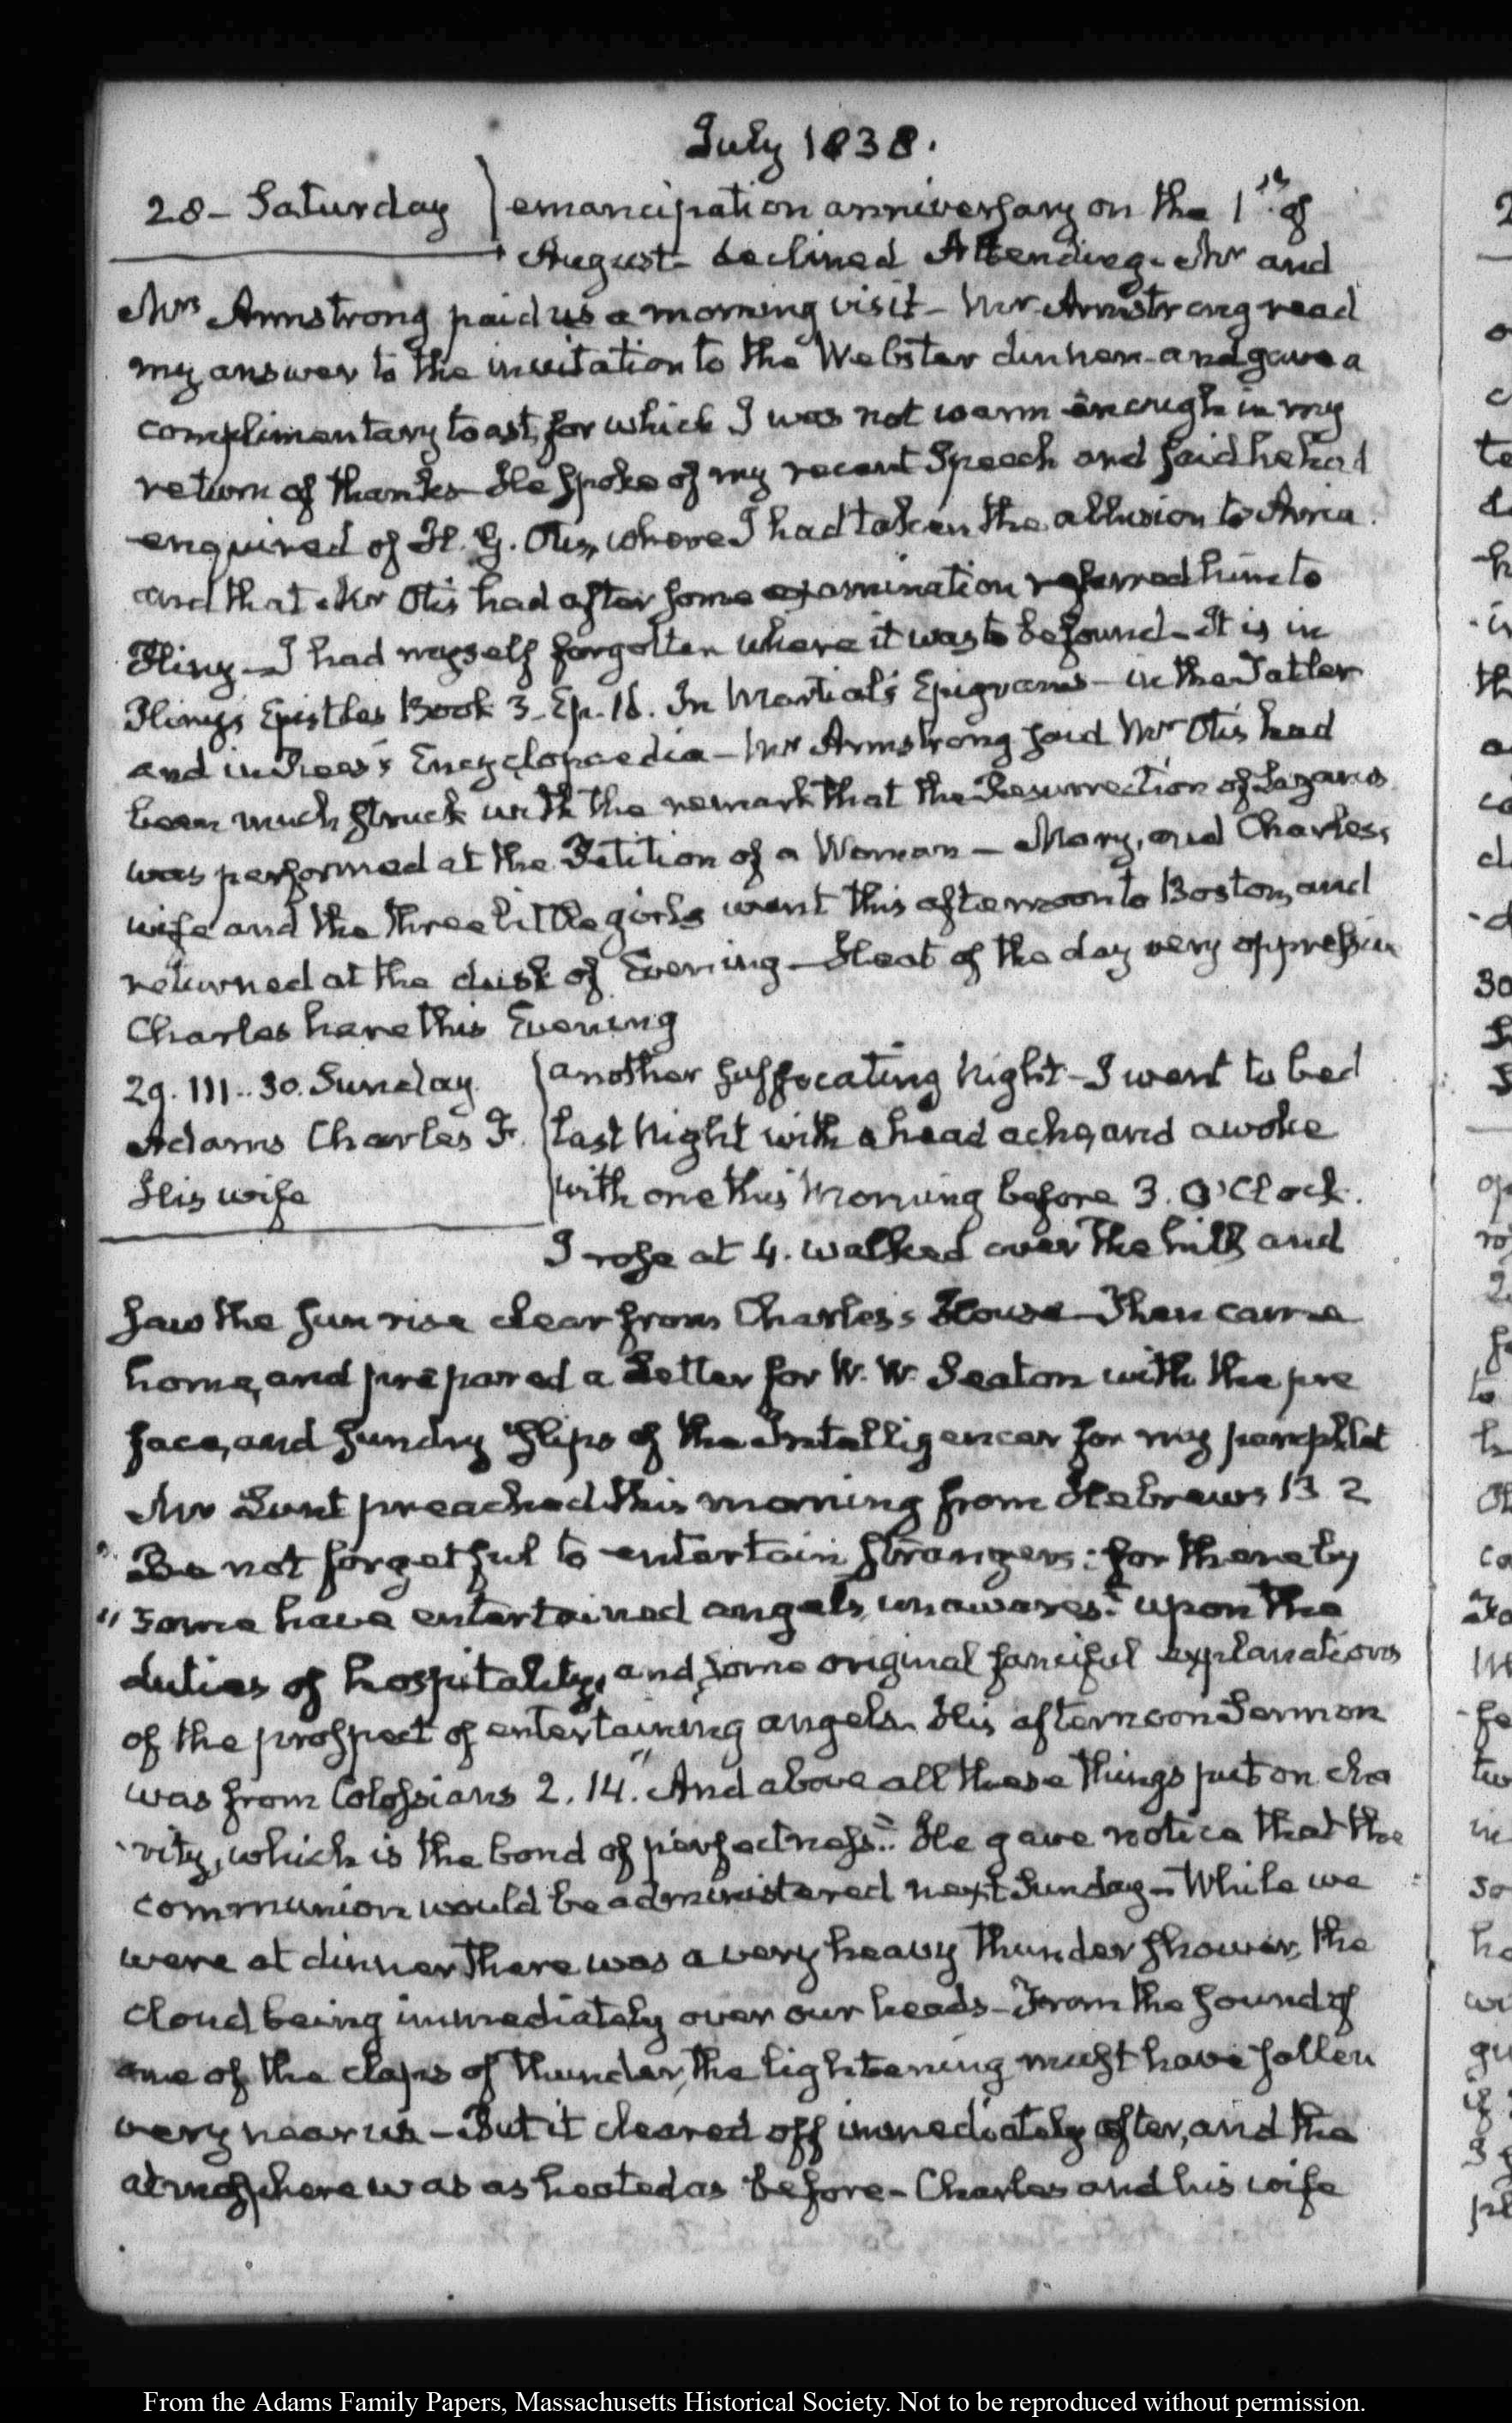 July 1838.
28- Saturday } emancipation anniversary on the 1st. of
August- declined Attending- Mr and
Mrs Armstrong paid us a morning visit- Mr Armstrong read
my answer to the invitation to the Webster dinner- and gave a
complimentary toast, for which I was not warm enough in my
return of thanks- He spoke of my recent Speech and said he had
enquired of H. G. Otis, where I had taken the allusion to Arria
and that Mr Otis had after some examination referred him to
Pliny- I had myself forgotten where it was to be found- It is in
Pliny's Epistles Book 3- Ep. 16. In Martial's Epigrams- in the Tatler
and in Rees's Encyclopaedia- Mr Armstrong said Mr Otis had
been much struck with the remark that the Resurrection of Lazarus
was performed at the Petition of a Woman- Mary, and Charles's
wife and the three little girls went this afternoon to Boston, and
returned at the dusk of Evening- Heat of the day very oppressive
Charles here this Evening
29. III.. 30. Sunday.
Adams Charles F.
His wife
another suffocating Night- I went to bed
last Night with a head ache, and awoke
with one this Morning before 3. O'Clock.
I rose at 4. walked over the hill and
saw the Sun rise clear from Charles's House- Then came
home, and prepared a Letter for W. W. Seaton with the pre
face, and sundry slips of the Intelligencer for my pamphlet
Mr Lunt preached this morning from Hebrews 13 2
" Be not forgetful to entertain strangers: for thereby
" some have entertained angels, unawares." upon the
duties of hospitality, and some original fanciful explanations
of the prospect of entertaining angels. His afternoon Sermon
was from Colossians 2. 14. "And above all these things put on cha
rity, which is the bond of perfectness." He gave notice that the
communion would be administered next Sunday- While we
were at dinner there was a very heavy Thunder shower, the
cloud being immediately over our heads- From the sound of
one of the claps of thunder, the lightening must have fallen
very near us- But it cleared off immediately after, and the
atmosphere was as heated as before- Charles and his wife
From the Adams Family Papers, Massachusetts Historical Society. Not to be reproduced without permission.